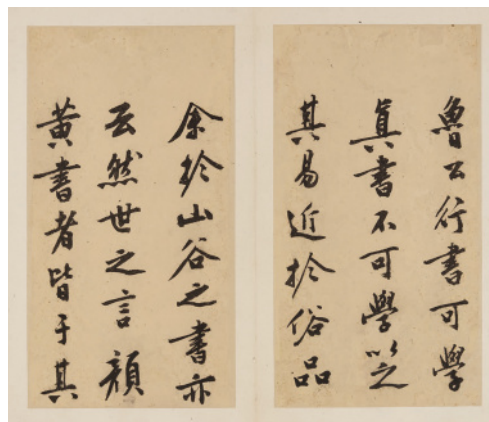 魯公行書可學
眞書不可學以之
其易近於俗品
余於山谷之書亦
云然世之言顏
黃書者皆于其